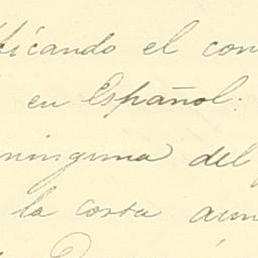 ficando el con
en Español.
ninguna del
la costa aun